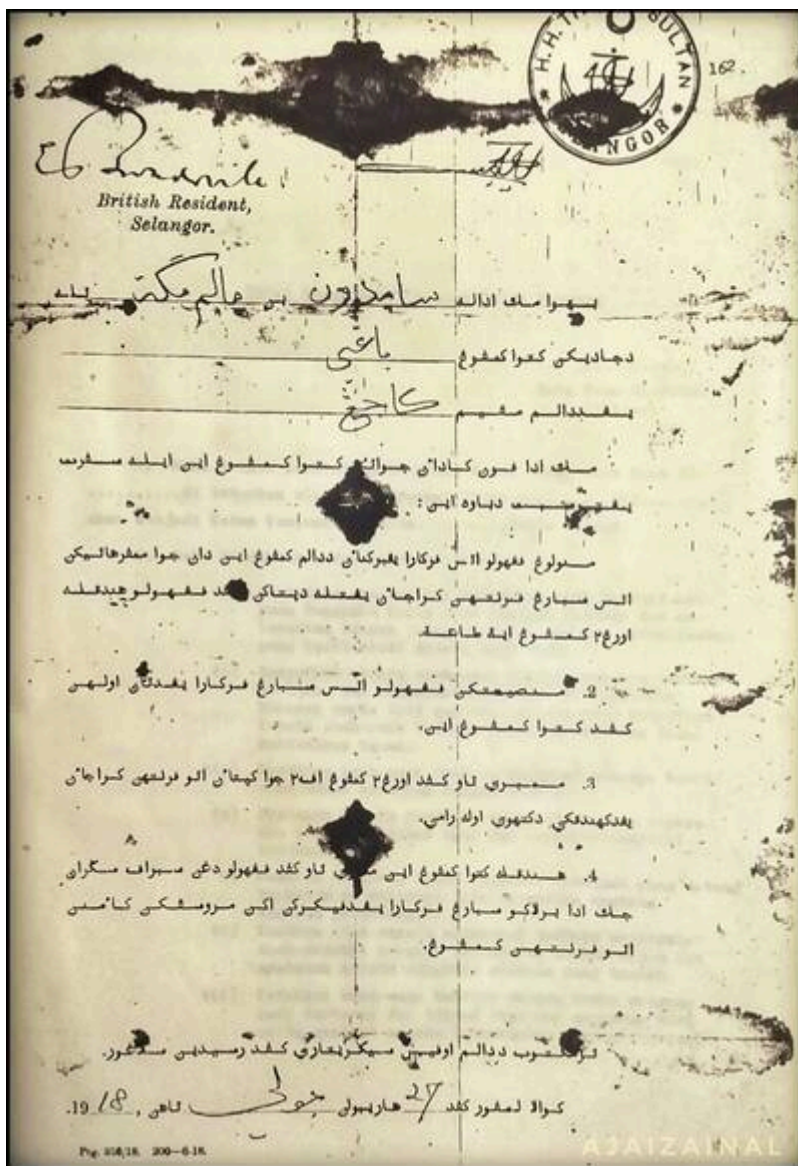 H.H. THE SULTAN
SELANGOR
162.
British Resident,
Selangor.
بهوا مك اداله سامدون بن حاليم مڬت تله
دجاديكن كتوا كمڤوڠ باڠي
يڠددالم مقيم كاجڠ
مك ادا ڤون كادأن جواتن كتوا كمڤوڠ اين ايله سڤرت
يڠترسبت دباوه اين:
منولوڠ ڤڠهولو اتس ڤركارا يڠبركنأن ددالم كمڤوڠ اين دان جوا ممرهاتيكن
اتس سبارڠ ڤرنته كراجأن يڠتله دڽتاكن كڤد ڤڠهولو هندقله
اورڠ٢ كمڤوڠ ايت طاعة.
2. منصيحتكن ڤڠهولو اتس سبارڠ ڤركارا يڠدتڽ اوليه
كڤد كتوا كمڤوڠ اين.
3. ممبري تاو كڤد اورڠ٢ كمڤوڠ اڤ٢ جوا كڽتأن اتو ڤرنته كراجأن
يڠدكهندقكي دكتهوي اوله رامي.
4. هندقله كتوا كمڤوڠ اين ممبري تاو كڤد ڤڠهولو دڠن سبراڤ سڬراڽ
جك ادا برلاكو سبارڠ ڤركارا يڠدڤيكركن اكن مروسقكن كأمنن
اتو ڤرنته كمڤوڠ.
ترمكتوب ددالم اوفيس سيكريتاري كڤد رسيدين سلاڠور.
كوالا لمڤور كڤد 27 هاريبولن جولي تاهن 1918.
Ptg. 316/18. 200—6-18.
AJAIZAINAL